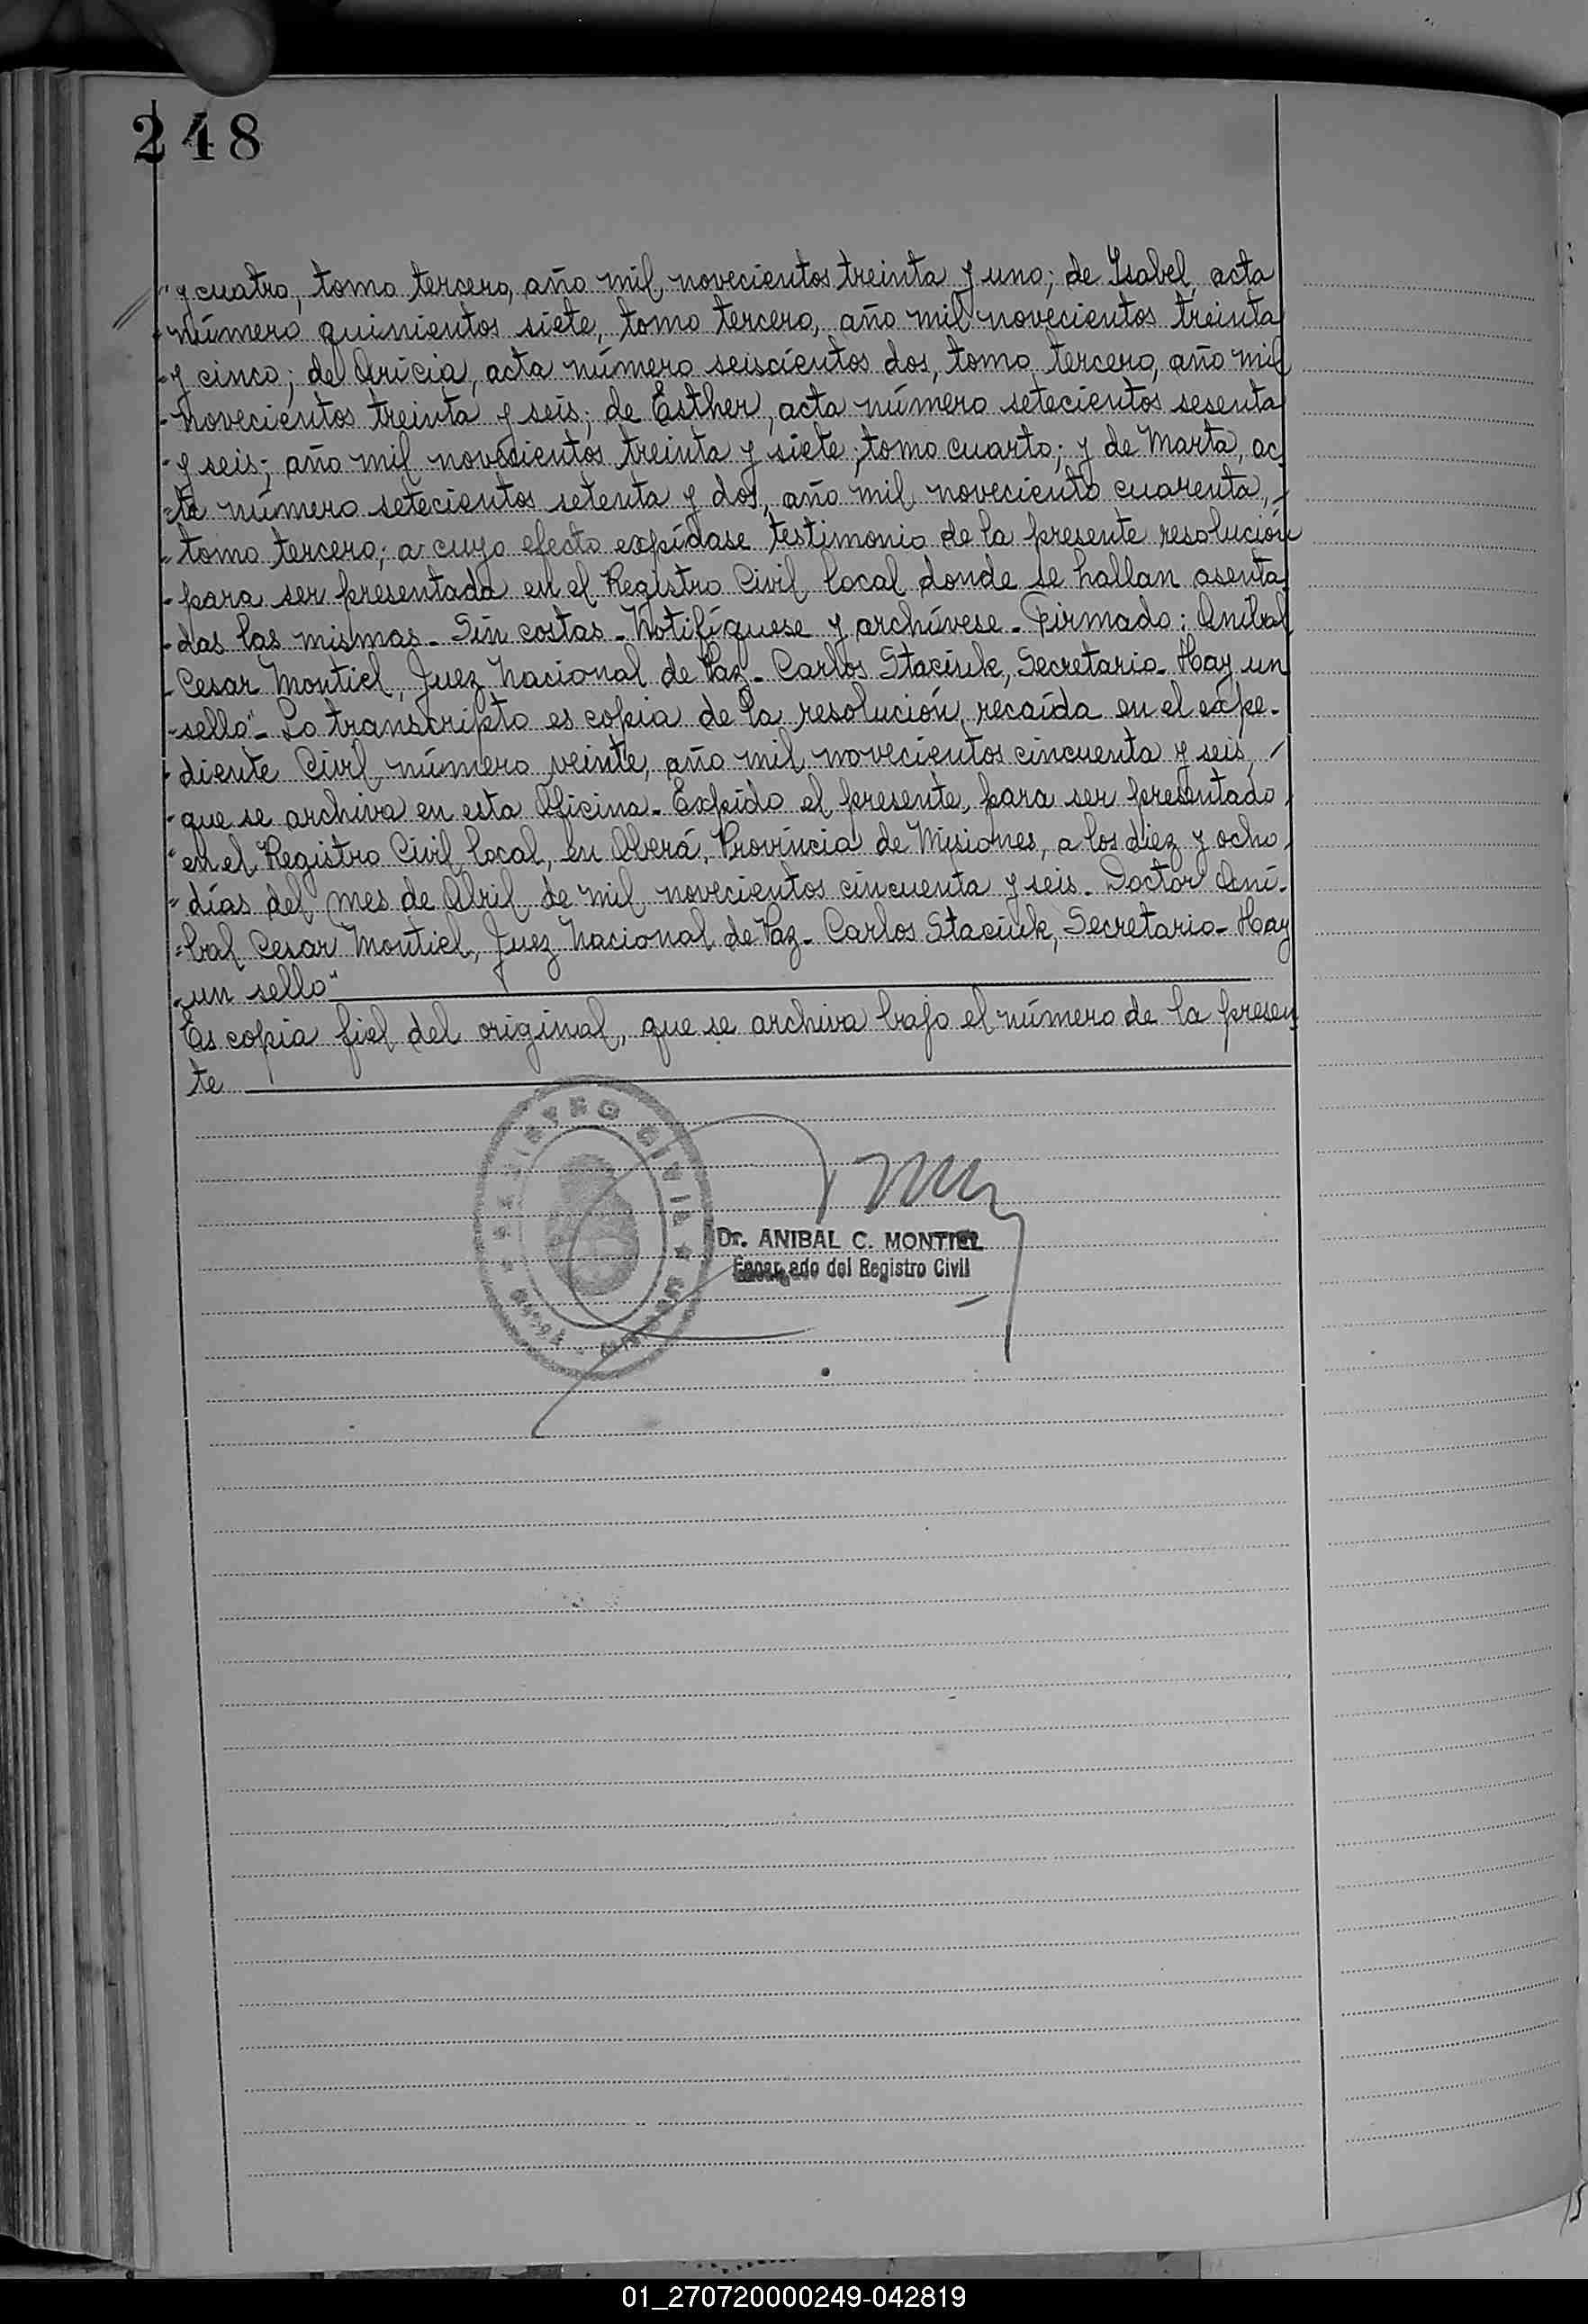 248
"y cuatro, tomo tercero, año mil novecientos treinta y uno; de Isabel, acta
"número quinientos siete, tomo tercero, año mil novecientos treinta
"y cinco; de Aricia, acta número seiscientos dos, tomo tercero, año mil
"novecientos treinta y seis; de Esther, acta número setecientos sesenta
"y seis; año mil novecientos treinta y siete; tomo cuarto; y de Marta, ac
"ta número setecientos setenta y dos, año mil noveciento cuarenta,-
"tomo tercero; a cuyo efecto expídase testimonio de la presente resolución
"para ser presentada en el Registro Civil local donde se hallan asenta
"das las mismas_ Sin costas_ Notifíquese y archívese_ Firmado: Anibal
"Cesar Montiel, Juez Nacional de Paz_ Carlos Staciuk, Secretario_ Hay un
"sello"_ Lo transcripto es copia de la resolución, recaída en el expe-
"diente Civil número veinte, año mil novecientos cincuenta y seis,-
"que se archiva en esta Oficina_ Expido el presente, para ser presentado,
"en el Registro Civil local, en Oberá, Provincia de Misiones, a los diez y ocho
"días del mes de Abril de mil novecientos cincuenta y seis_ Doctor Aní-
"bal Cesar Montiel, Juez Nacional de Paz_ Carlos Staciuk, Secretario_ Hay
"un sello"
Es copia fiel del original, que se archiva bajo el número de la presen
te
REGISTRO CIVIL
Dr. ANIBAL C. MONTIEL
Encargado del Registro Civil
01_270720000249-042819